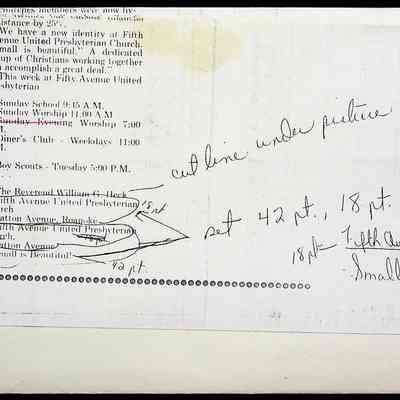 istance by 25%.
We have a new identity at Fifth
enue United Presbyterian Church.
mall is beautiful." A dedicated
up of Christians working together
accomplish a great deal."
This week at Fifty Avenue United
sbyterian
Sunday School 9:45 A.M.
Sunday Worship 11:00 A.M
Sunday Evening Worship 7:00
M.
Diner's Club - Weekdays 11:00
M.
Boy Scouts - Tuesday 5:00 P.M.
cut line under picture
The Reverend William G.
Fifth Avenue United Presbyterian
urch
18 pt
Patton Avenue, Roanoke
Fifth Avenue United Presbyterian
urch.
18 pt.
Patton Avenue
mall is Beautiful!
42 pt.
set 42 pt., 18 pt.
18 pt Fifth Av
Small